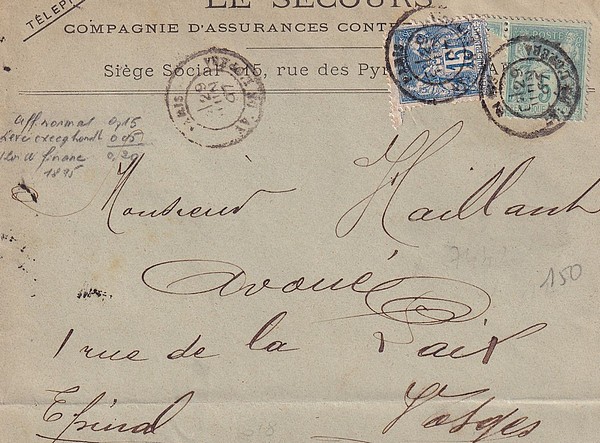 LE SECOURS
TÉLÉP
COMPAGNIE D'ASSURANCES CONT
Siège Social 15, rue des Pyr
PARIS
15
POSTE
aff normal 0,15
levée exceptionnelle 0,05
Loi de finance 0,20
1895
Monsieur Haillant
avoué
150
1 rue de la Paix
Epinal Vosges